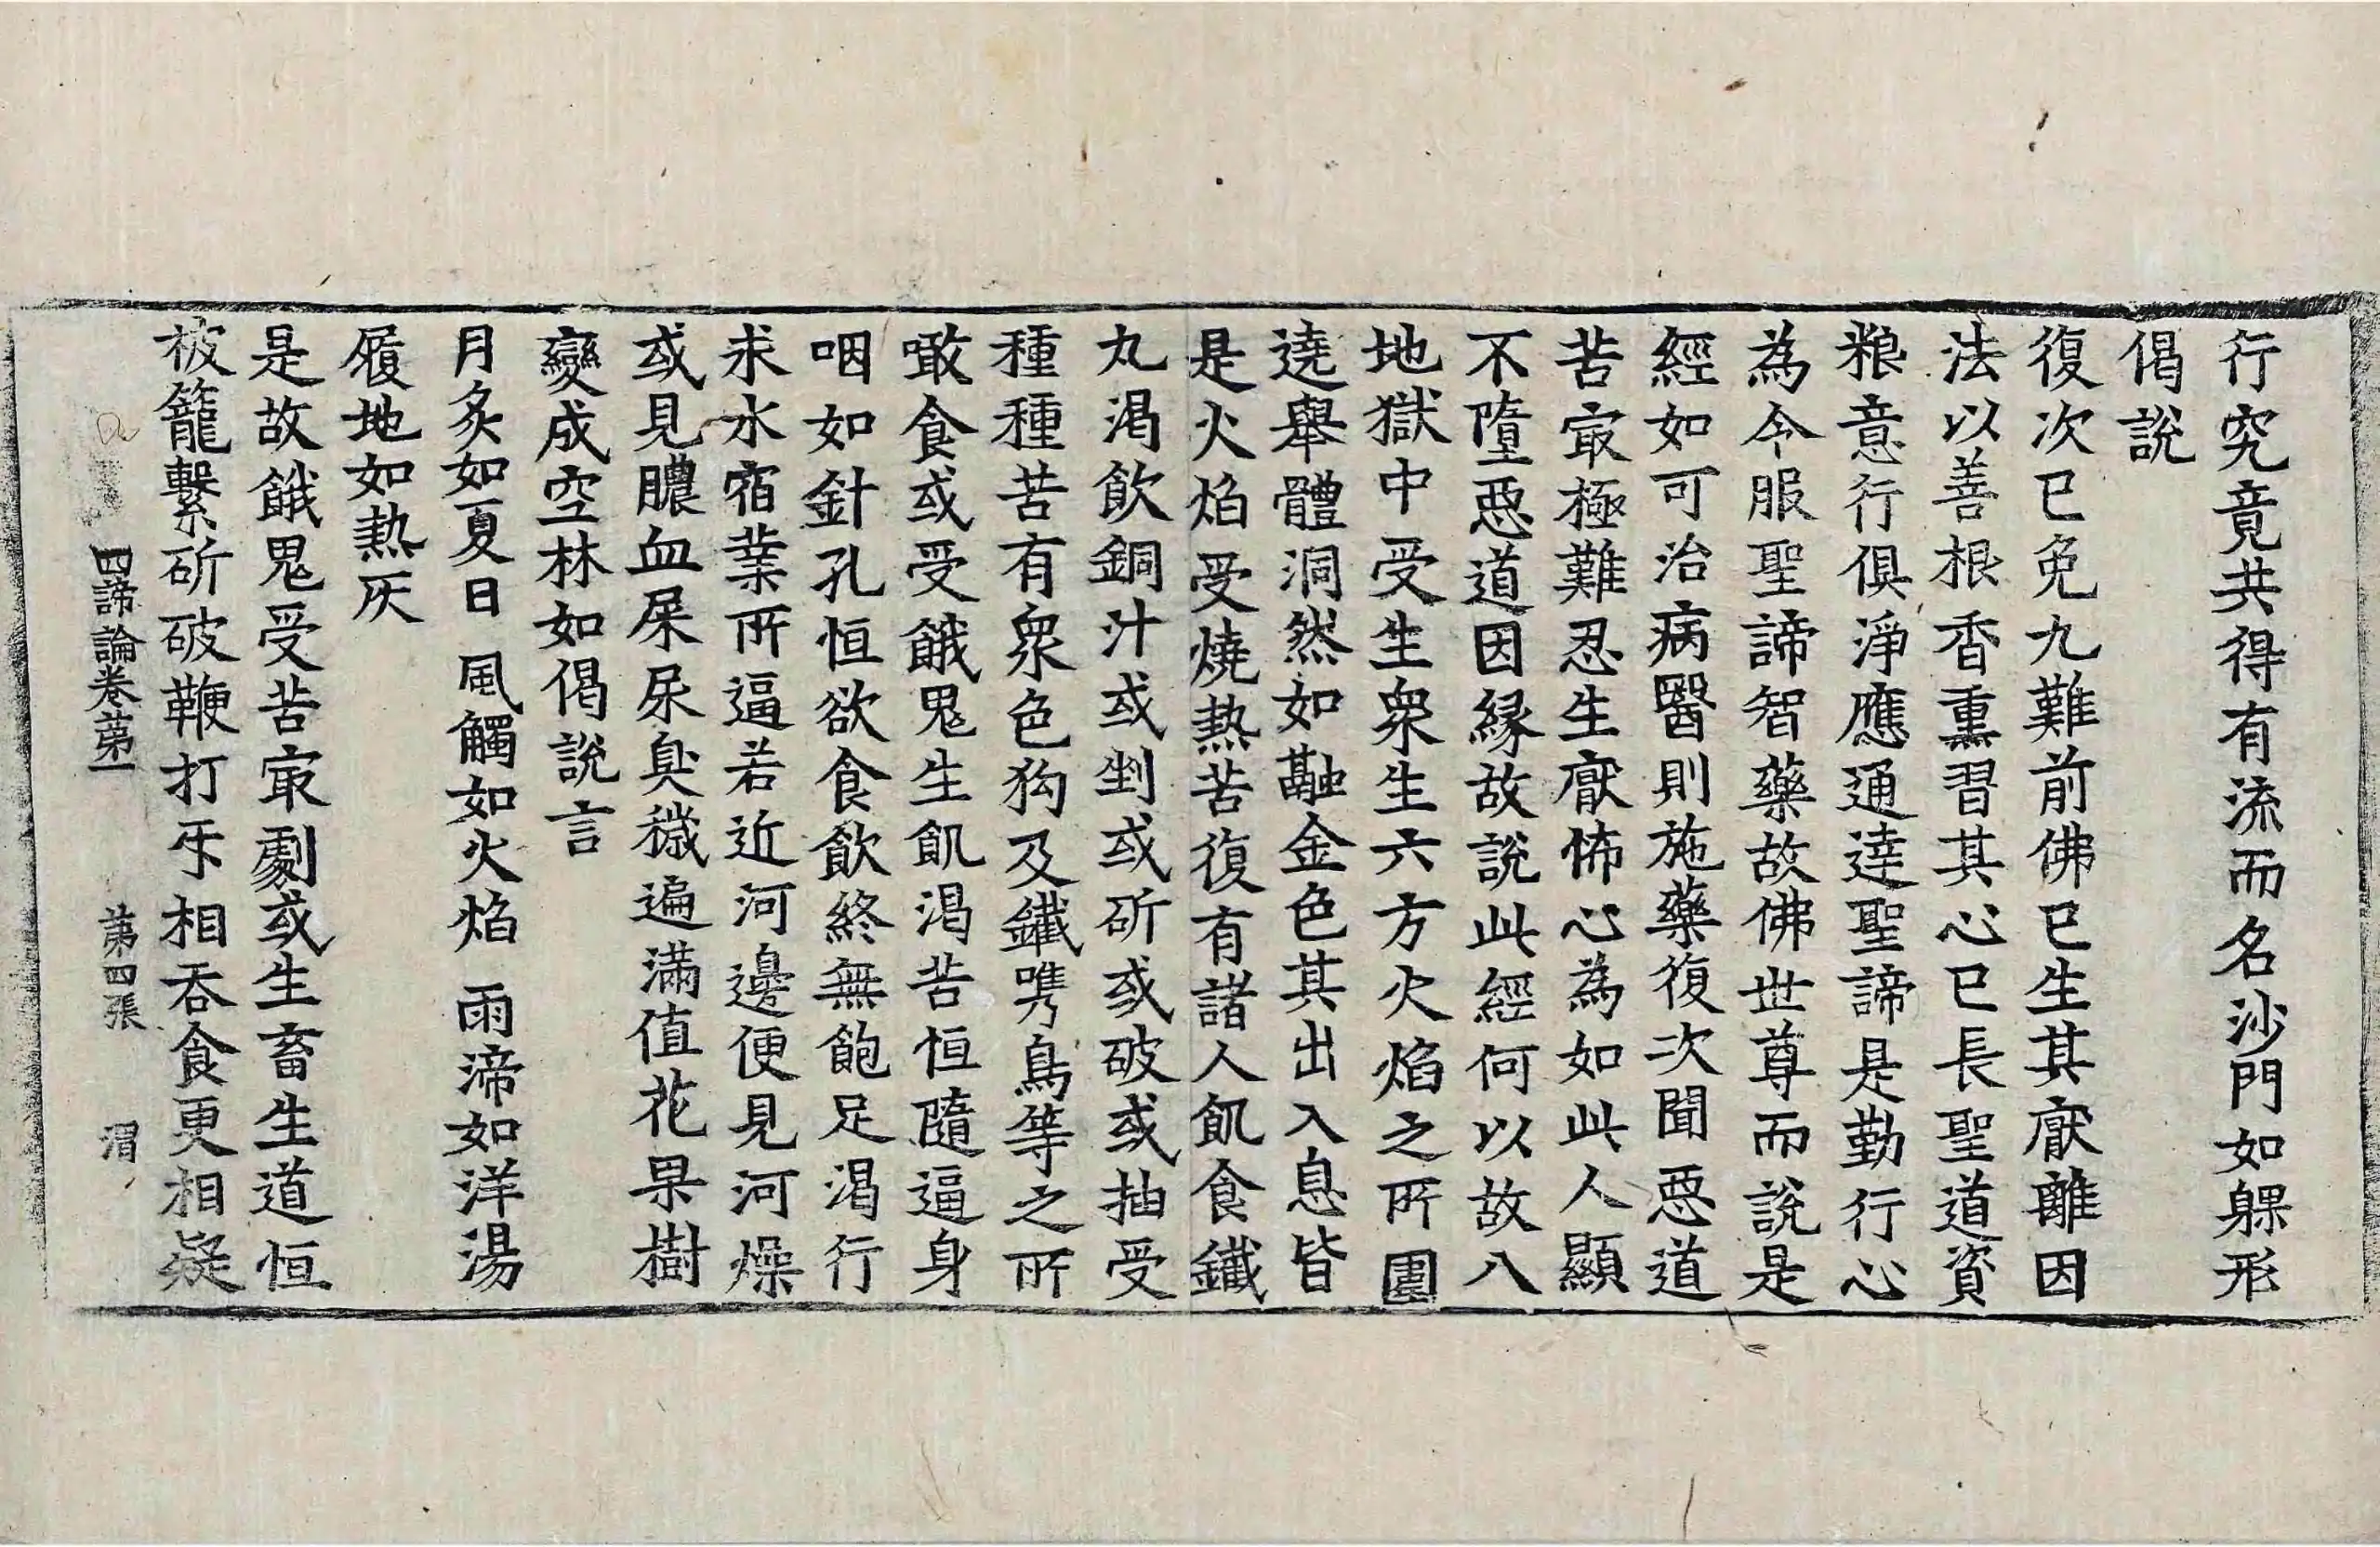 行究竟共得有流而名沙門如躶形
偈說
復次已免九難前佛已生其猒離因
法以善根香熏習其心已長聖道資
粮意行俱淨應通達聖諦是勤行心
為令服聖諦智藥故佛世尊而說是
經如可治病醫則施藥復次聞惡道
苦㝡極難忍生猒怖心為如此人顯
不墮惡道因緣故說此經何以故八
地獄中受生衆生六方火焰之所圍
遶舉體洞然如融金色其出入息皆
是火焰受燒熱苦復有諸人飢食鐵
丸渴飲銅汁或剉或斫或破或抽受
種種苦有衆色狗及鐵㭰鳥等之所
噉食或受餓鬼生飢渴苦恒隨逼身
咽如針孔恒欲食飲終無飽足渴行
求水宿業所逼若近河邊便見河燥
或見膿血屎尿臭穢遍滿値花果樹
變成空林如偈說言
月炙如夏日 風觸如火焰 雨渧如洋湯
履地如熱灰
是故餓鬼受苦㝡劇或生畜生道恒
被籠繫斫破鞭打㸦相吞食更相疑
四諦論卷第一 第四張 渭